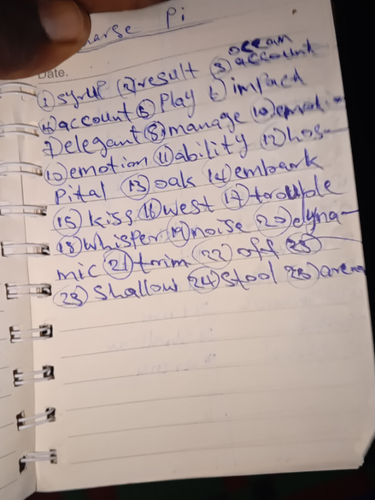 Pi
ocean
Date.
① syrup ② result ③ account
④ account ⑤ Play ⑥ impact
7) elegant ⑧ manage ⑩
⑩ emotion ⑪ ability ⑫ hos-
pital ⑬ oak ⑭ embark
⑮ kiss ⑯ west ⑰ trouple
⑱ whisper ⑲ noise ⑳ dyna-
mic ㉑ trim ㉒ off ㉓
㉓ Shallow ㉔ stool ㉕ arena